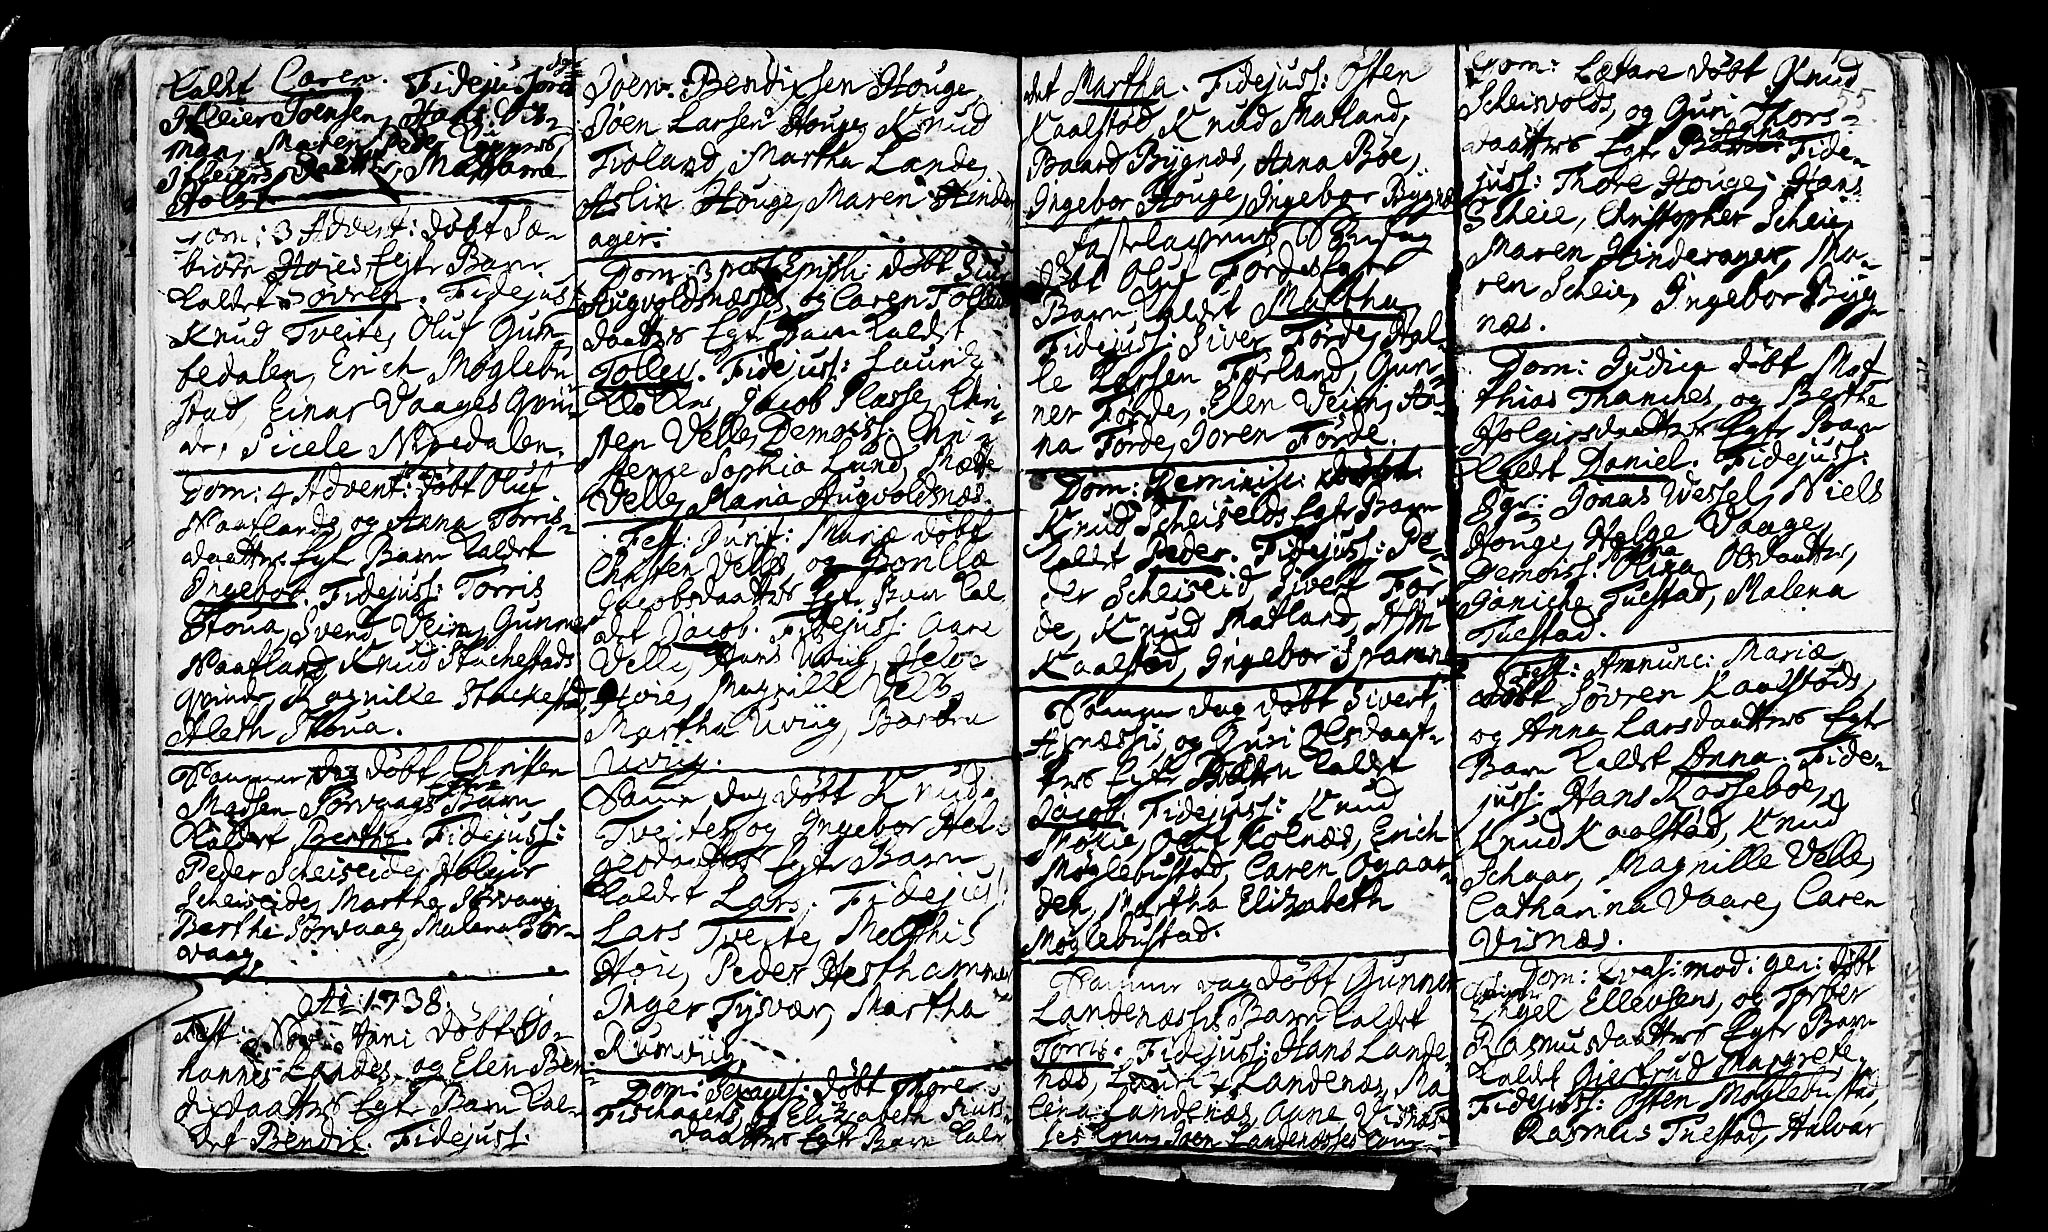 Kaldt Caren. Fidejuss:
Hleier Joensen, Hans
man, Maren Peder
Hleiers Daatter, Madame
Holst
Dom: 3 Advent: døbt Sæ-
biørn Høies Egte Barn
Kaldet Søvren. Fidejuss:
Knud Tveite, Oluf Gun-
bedalen, Erich Møglebu-
stad, Einar Vaages Qvin-
de, Sicele Nipedalen.
Dom: 4 Advent: døbt Oluf
Naaflands, og Anna Torris-
daatters Egte Barn Kaldet
Ingebor. Fidejuss: Torris
Stoua, Svend Veim, Gunner
Naafland, Knud Stuchestads
Qvinde, Magnille Stuchestad,
Aleth Stoua.
Samme dag døbt Christen
Madsen Sørvaags Egte Barn
Kaldet Berthe. Fidejuss:
Peder Scheiseide, Holgier
Scheiseide, Martha Sørvaag
Berthe Sørvaag, Malena Sør-
vaag.
A: 1738.
Fest: Nov: Anni døbt Jo-
hannes Landes, og Elen Ben-
dixdaatters Egte Barn Kal-
det Bendix. Fidejuss:
Joen Bendixsen Houge,
Joen Larsen Houge, Knud
Fioland, Martha Lande,
Aslin Houge, Maren Hinder
ager.
Dom: 3 post Epiph: døbt
Augvoldsnæsses, og Caren Tollev
daatters Egte Barn Kaldet
Tollev. Fidejuss: Lauridz
Jacob Plasse, Chri-
sten Velle, Demoiss: Chri-
stence Sophia Lund, Mætte
Velle, Maria Augvoldsnæs.
Fest: Purif: Mariæ døbt
Christen Velles og Bonillæ
Jacobsdaatters Egte Barn Kal-
det Jacob. Fidejuss: Aare
Velle, Hans Uviig, Helge
Høie, Magnille Velle,
Martha Uviig, Barbra
Uviig.
Samme dag døbt Knud
Tveites og Ingebor Hel-
gesdaatters Egte Barn
Kaldet Lars. Fidejuss:
Lars Tveite, Mathis
Høie, Peder Hesthammer
Inger Tysvær, Martha
Rusviig.
Dom: Sexages: døbt Thore
Fischagers og Elizabeth Siurs-
daatters Egte Barn Kale-
det Martha. Fidejuss: Østen
Kaalstød, Knud Matland,
Baard Bygnæs, Anna Bøe,
Ingebor Houge, Ingebor Bygnæs
Fastelavens Søndag
døbt Oluf Førdes Egte
Barn Kaldet Martha,
Fidejuss: Siver Førde, Hal-
le Larsen Førland, Gun-
ner Førde, Elen Veim, An-
na Førde, Joren Førde.
Dom: Reminisc: døbt
Knud Scheiselds Egte Barn
Kaldet Peder. Fidejuss: Pe-
der Scheiseid, Sivert Før-
de, Knud Matland,
Kaalsted, Ingebor Spanne
Samme dag døbt Sivert
Asnæssis, og Guri Olsdaat-
ters Egte Barn Kaldet
Jacob. Fidejuss: Knud
Støkie, Oluf Kolnæs, Erich
Møglebustad, Caren Ogaar-
den, Martha Elizabeth
Møglebustad.
Samme dag døbt Gunner
Landenæssis Barn Kaldet
Torris. Fidejuss: Hans Lande-
næs, Lauridz Landenæs, Ma-
lena Landenæs, Anne Visnæs-
55
Dom: Lætare døbt Knud
Scheisvolds, og Guri Thors-
daatters Egte Barn Anna Fide-
juss: Thore Houge, Hans
Scheie, Christopher Scheie,
Maren Hinderager, Ma-
ren Scheie, Ingebor Byg-
næs.
Dom: Judica døbt Mat
thias Thanches, og Berthe
Holgiersdaatters Egte Barn
Kaldet Daniel. Fidejuss:
Sgr: Jonas Wessel, Niels
Houge, Helge Vaage,
Demoiss: Olina Olsdaatter,
Janiche Tuestad, Malena
Tuestad.
Fest: Annunc: Mariæ
døbt Søvren Kaalstøds,
og Anna Larsdaatters Egte
Barn Kaldet Anna. Fide-
juss: Hans Kosseboe,
Knud Kaalstad, Knud
Schaar, Magnille Velle,
Catharina Vaare, Caren
Visnæs.
Dom: Qvasi: mod: gen: døbt
Engel Ellevsens, og Torber
Rasmusdaatters Egte Barn
Kaldet Giertrud Margrete,
Fidejuss: Østen Møglebustad,
Rasmus Tuestad, Halvar